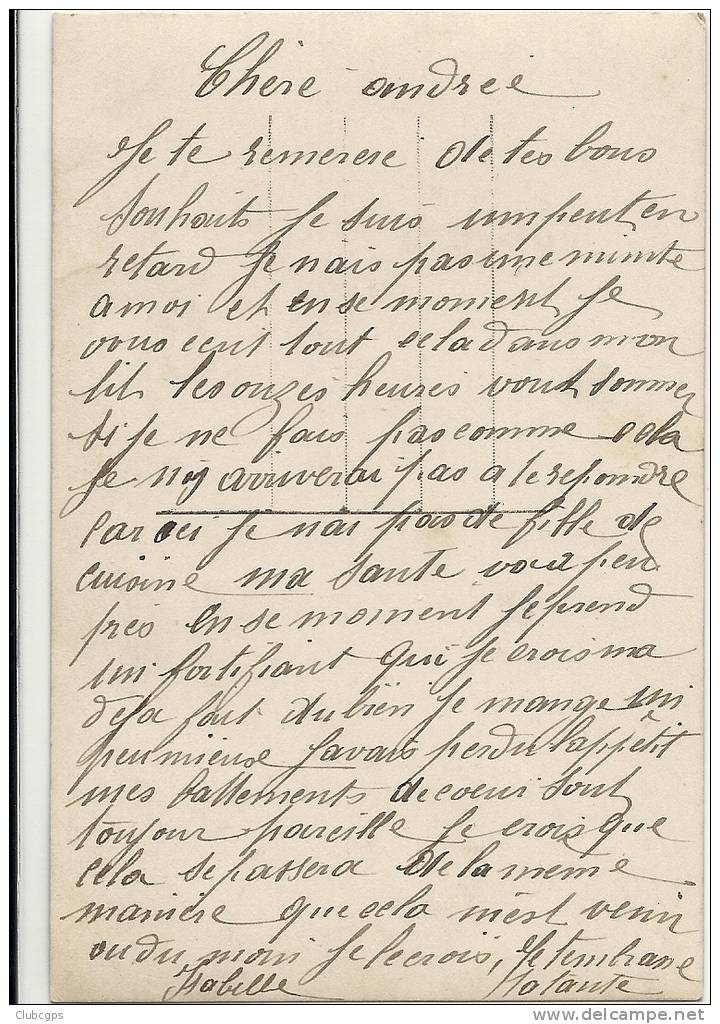 Chère andrée
Je te remerere de tes bons
souhaits Je suis unpeut en
retard Je nais pas une minute
a moi et en se moment Je
vous ecrit tout cela dans mon
lit les onzes heures vont sonner
si je ne fais pas comme cela
Je ny arriverai pas a te repondre
car ici Je nai pas de fille de
cuisine ma santé va à peu
près en se moment Je prend
un fortifiant qui Je crois ma
deja fait du bien Je mange un
peu mieux Javais perdu lappêtit
mes battements de coeur sont
toujour pareille Je crois que
cela se passera de la meme
manière que cela m'est venir
ou du moin Je le crois, Je tembrasse
Isabelle Ta tante
Clubcgps